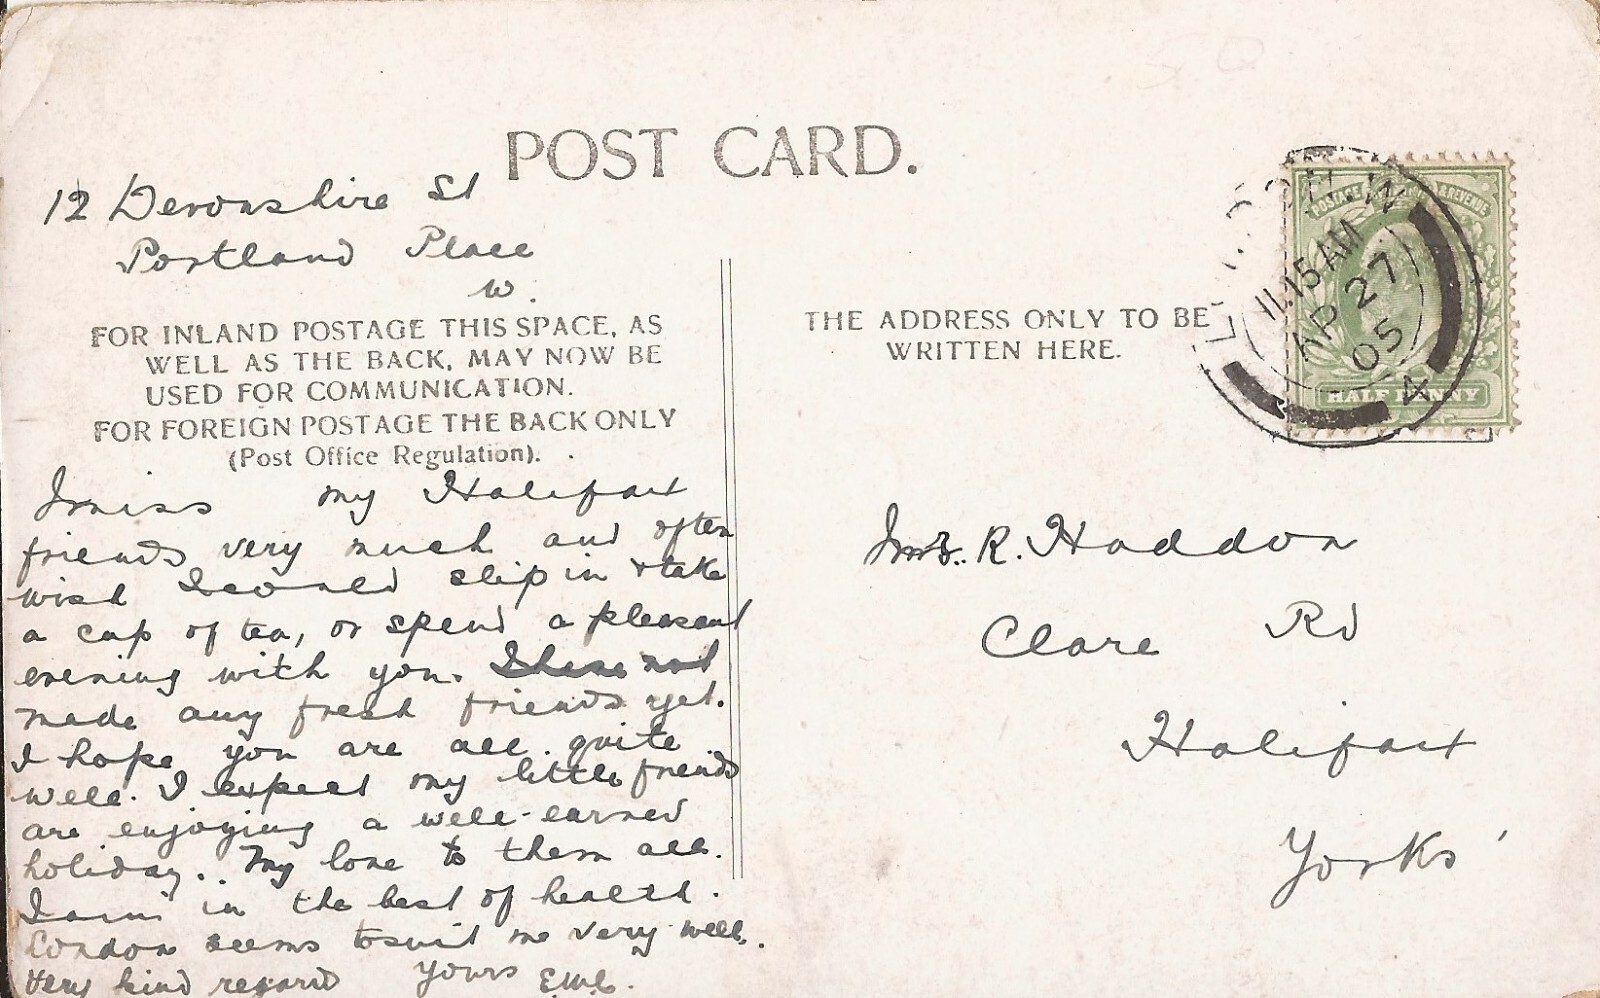 POST CARD.
12 Devonshire St
Portland Place
W.
FOR INLAND POSTAGE THIS SPACE, AS
WELL AS THE BACK, MAY NOW BE
USED FOR COMMUNICATION.
FOR FOREIGN POSTAGE THE BACK ONLY
(Post Office Regulation).
I miss my Halifax
friends very much and often
wish I could slip in & take
a cup of tea, or spend a pleasant
evening with you. I have not
made any fresh friends yet.
I hope you are all quite
well. I expect my little friends
are enjoying a well-earned
holiday. My love to them all.
I am in the best of health.
London seems to suit me very well.
Very kind regard Yours
THE ADDRESS ONLY TO BE
WRITTEN HERE.
LONDON. W
11.15 AM
AP 27
05
4
POSTAGE & REVENUE
HALF PENNY
Mrs. R. Haddon
Clare Rd
Halifax
Yorks'